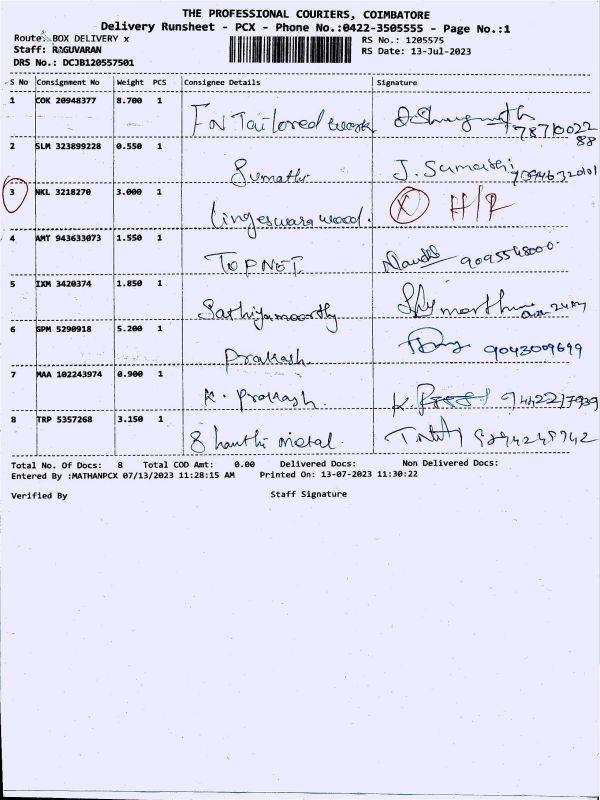 THE PROFESSIONAL COURIERS, COIMBATORE
Delivery Runsheet - PCX - Phone No.:0422-3505555 - Page No.:1
Route: BOX DELIVERY x RS No.: 1205575
Staff: RAGUVARAN RS Date: 13-Jul-2023
DRS No.: DCJB120557501
S No Consignment No Weight PCS Consignee Details Signature
1 COK 20948377 8.700 1
FN Tailored work 7871002288
2 SLM 323899228 0.550 1
Sumathi J. Sumathi
3 NKL 3218270 3.000 1
lingeswara wood. X H/R
4 AMT 943633073 1.550 1
TOPNET
5 IXM 3420374 1.850 1
Sathiyamoorthy
6 GPM 5290918 5.200 1
Prakash. 9043009699
7 MAA 102243974 0.900 1
K. Prakash. K.
8 TRP 5357268 3.150 1
Shanthi metal.
Total No. Of Docs: 8 Total COD Amt: 0.00 Delivered Docs: Non Delivered Docs:
Entered By :MATHANPCX 07/13/2023 11:28:15 AM Printed On: 13-07-2023 11:30:22
Verified By Staff Signature